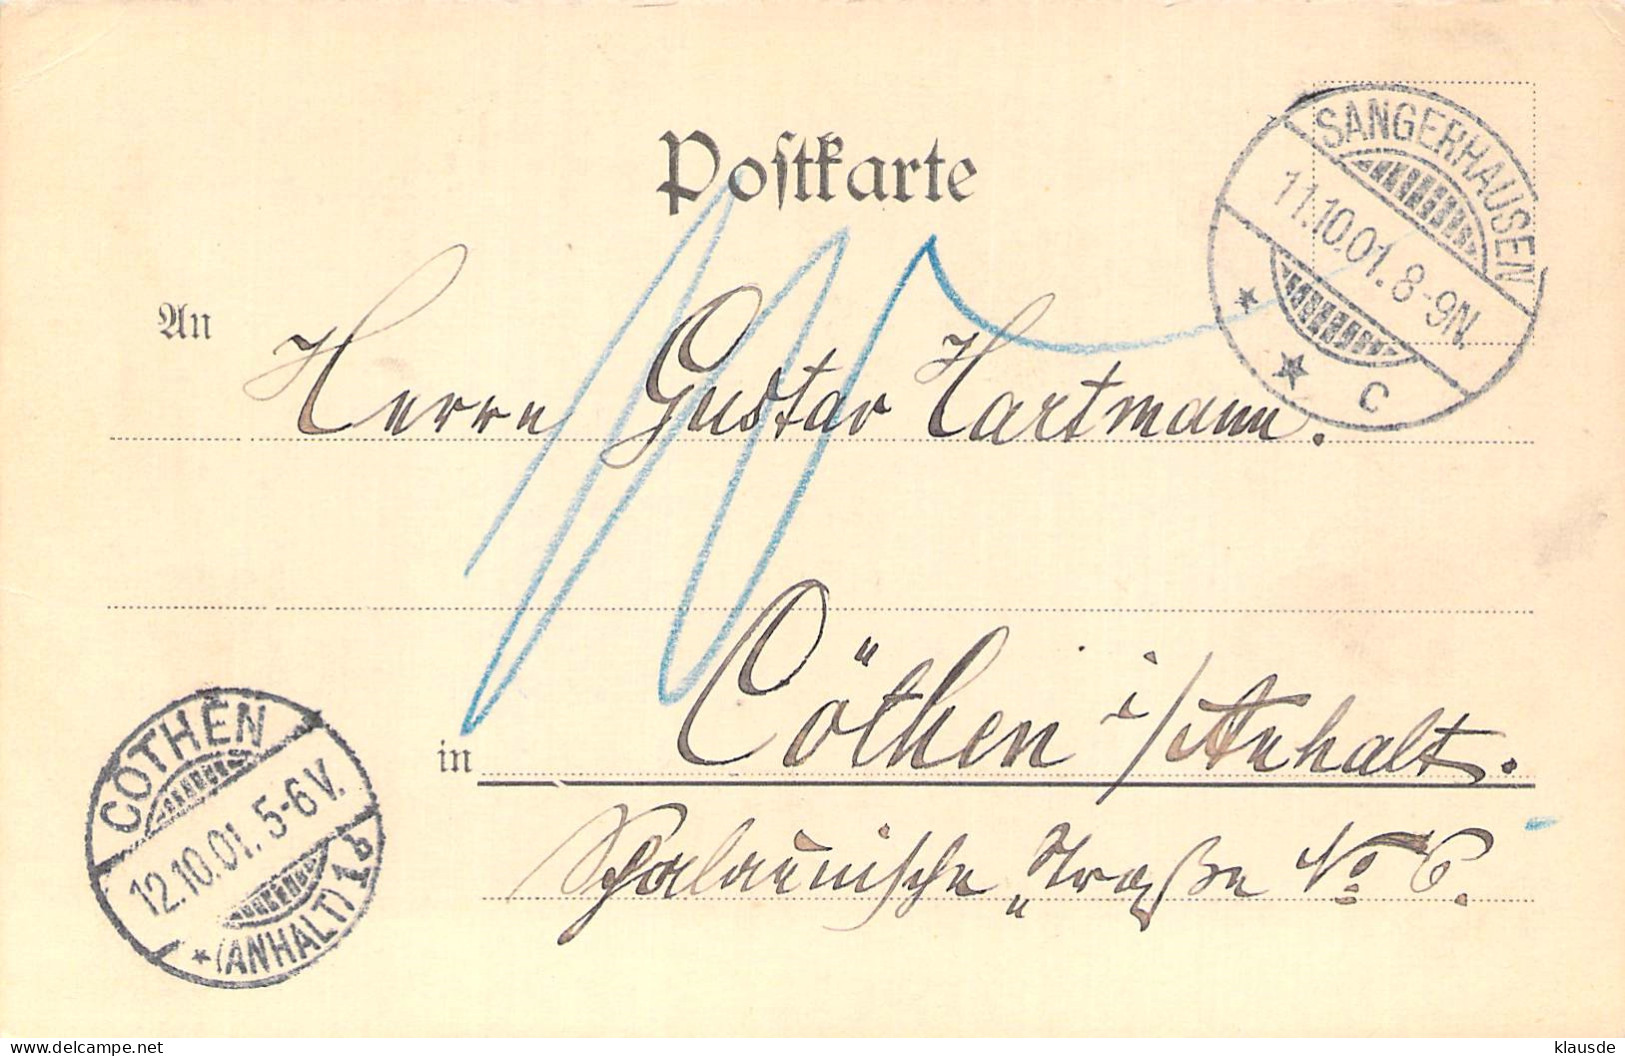 Postkarte
SANGERHAUSEN
11.10.01. 8-9N.
* * C
An Herrn Gustav Hartmann.
in Cöthen i/Anhalt.
Schalaunische Straße No 6.
CÖTHEN
12.10.01. 5-6V.
* (ANHALT) 1
delcampe.net
klausde